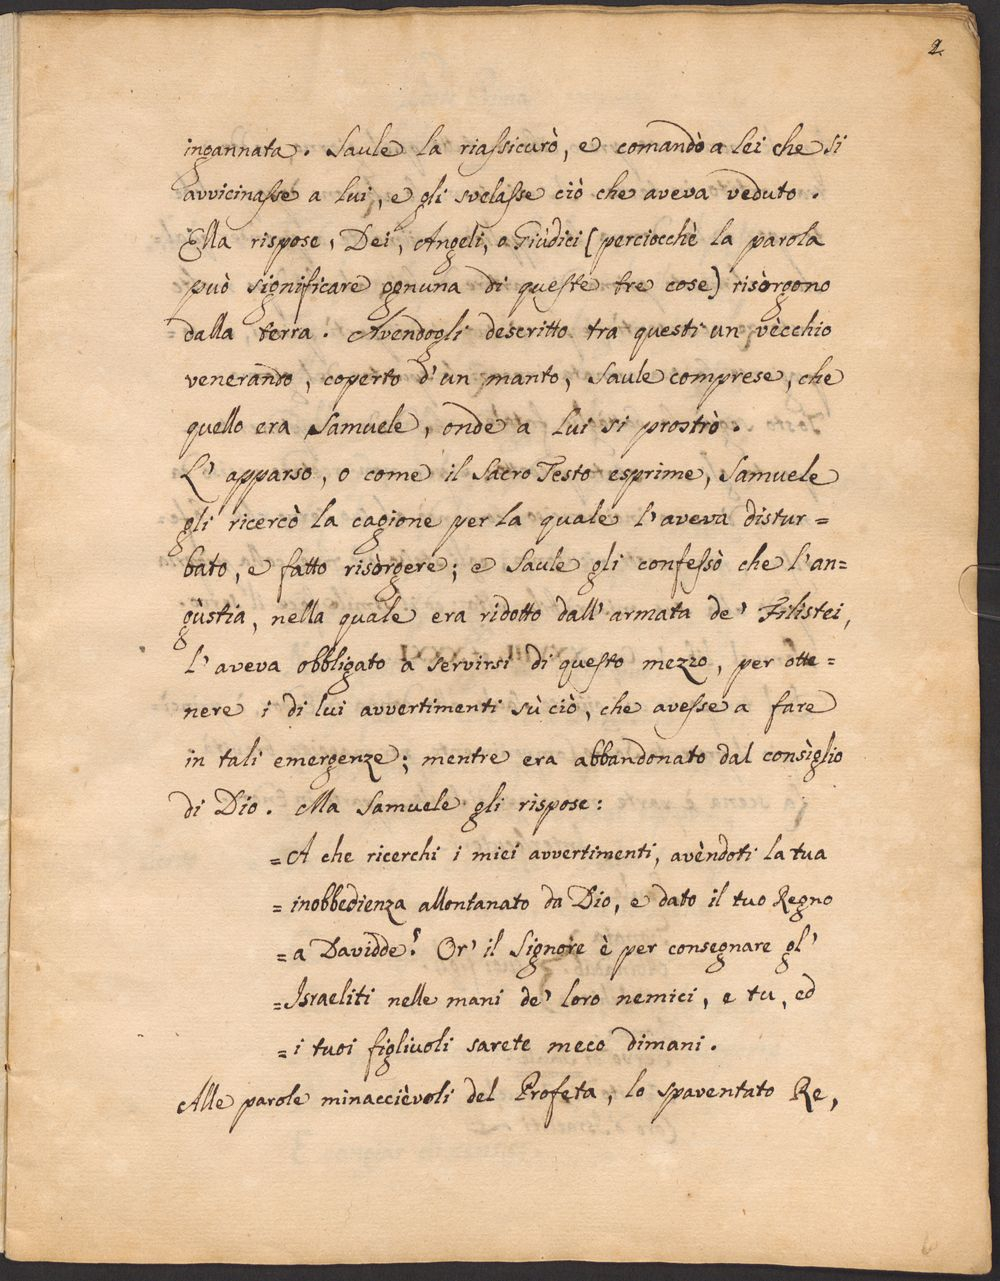 2
ingannata. Saule la riassicurò, e comandò a lei che si
avvicinasse a lui, e gli svelasse ciò che aveva veduto.
Ella rispose, Dei, Angeli, o Giùdici (perciocchè la parola
può significare ognuna di queste tre cose) risòrgono
dalla terra. Avendogli descritto tra questi un vècchio
venerando, coperto d'un manto, Saule comprese, che
quello era Samuele, onde a lui si prostrò.
L'apparso, o come il Sacro Testo esprime, Samuele
gli ricercò la cagione per la quale l'aveva distur=
bato, e fatto risòrgere; e Saule gli confessò che l'an=
gùstia, nella quale era ridotto dall'armata de' Filistei,
l'aveva obbligato a servirsi di questo mezzo, per otte=
nere i di lui avvertimenti sù ciò, che avesse a fare
in tali emergenze; mentre era abbandonato dal consìglio
di Dio. Ma Samuele gli rispose:
=A che ricerchi i miei avvertimenti, avèndoti la tua
= inobbedienza allontanato da Dio, e dato il tuo Regno
= a Davidde? Or' il Signore è per consegnare gl'
=Israeliti nelle mani de' loro nemici, e tu, ed
= i tuoi figliuoli sarete meco dimani.
Alle parole minaccièvoli del Profeta, lo spaventato Re,